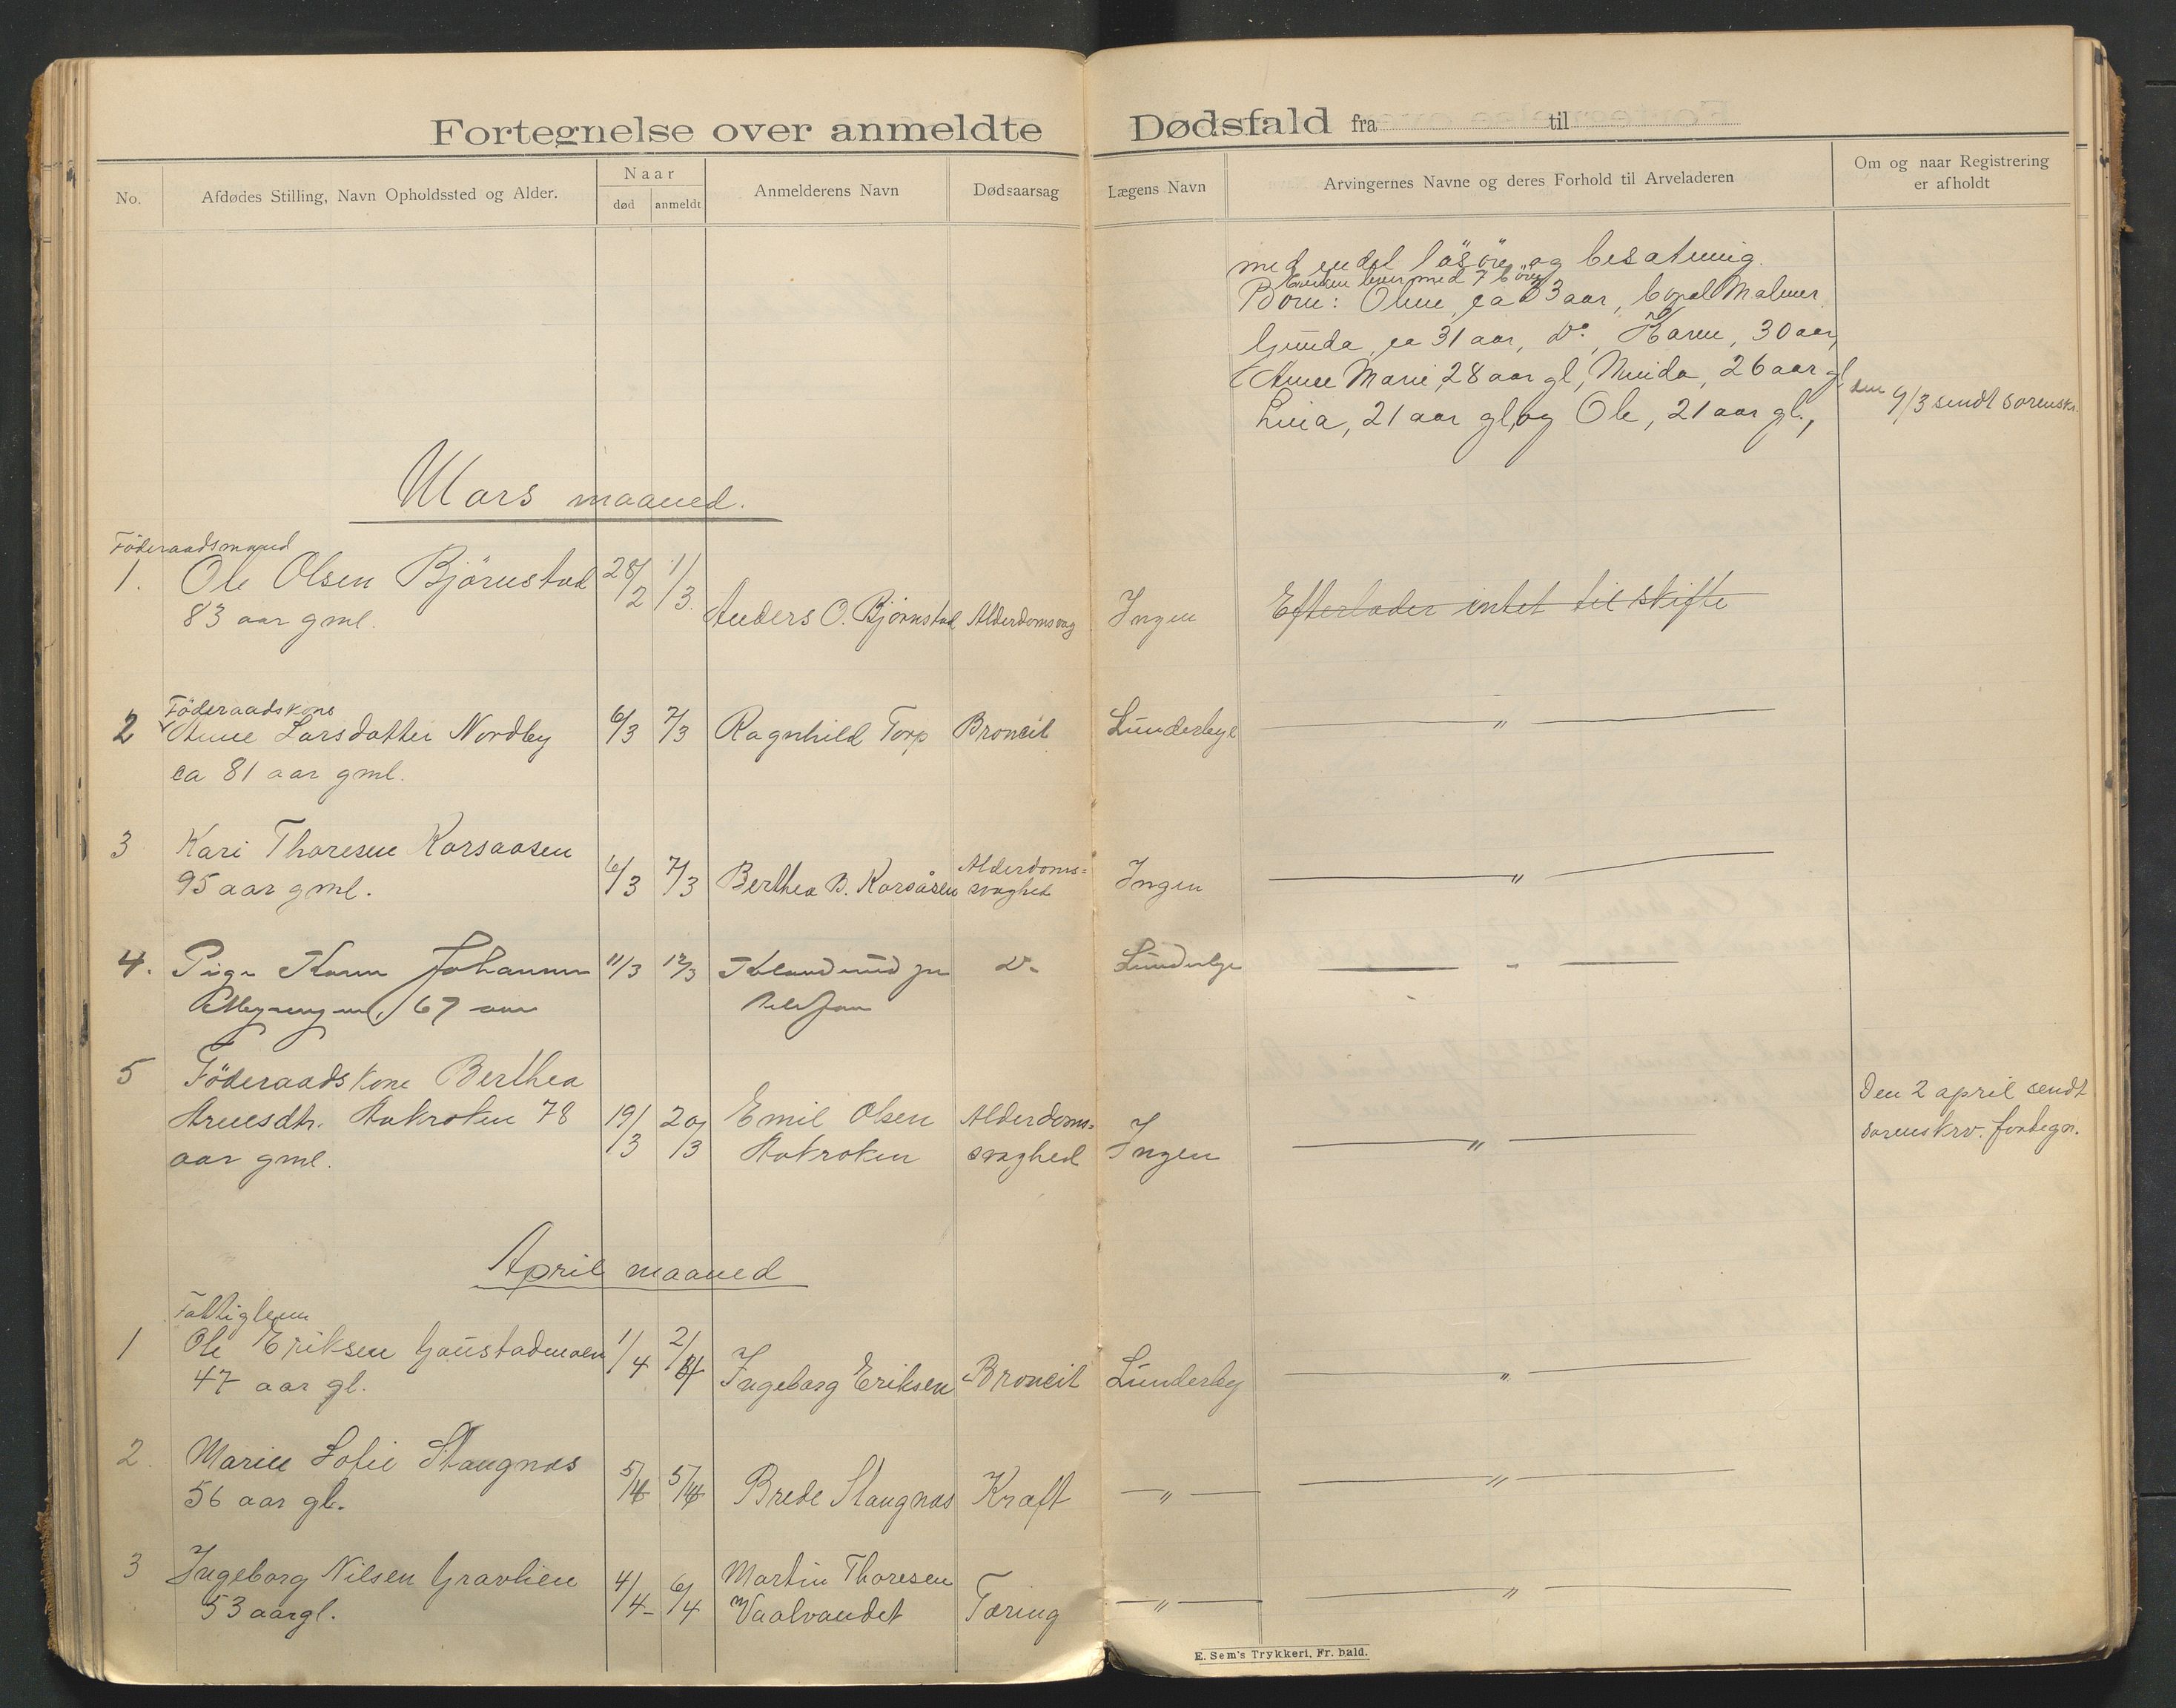 Fortegnelse over anmeldte Dødsfald fra til
No.
Afdødes Stilling, Navn Opholdssted og Alder.
Naar
død
anmeldt
Anmelderens Navn
Dødsaarsag
Lægens Navn
Arvingernes Navne og deres Forhold til Arveladeren
Om og naar Registrering
er afholdt
med endel løsøre og besætning.
Enken lever med 7 børn
Börn: 33 aar, Malmer
Gunda, ca 31 aar, do. Karen, 30 aar,
Anne Marie, 28 aar gl, 26 aar gl,
Lina, 21 aar gl, og Ole, 21 aar gl.,
den 9/3 sendt sorenskr.
Mars maaned.
Föderaadsmand
1. Ole Olsen Björnstad 28/2 1/3. Anders O. Bjørnstad Alderdomsvag Ingen Efterlader intet til skifte
83 aar gml.
Föderaadskone
2 Anne Larsdatter Nordby 6/3 7/3 Ragnhild Torp Broncit Lunderbye — " —
ca 81 aar gml.
3 Kari Thoresen Korsaasen
95 aar gml. 6/3 7/3 Berthea B. Korsåsen Alderdoms=
svaghed Ingen — " —
4. Pige Karen Johannes 11/3 12/3 do Lunderbye — " —
67 aar telefon
5 Föderaadskone Berthea
Arnesdtr. Aakroken 78 19/3 20/3 Emil Olsen Alderdoms=
aar gml. Aakroken svaghed Ingen — " —
Den 2 april sendt
sorenskrv. fortegn.
April maaned
Fattiglem
1 Ole Eriksen Gaustadmoen 1/4 2/4 Ingeborg Eriksen Broncit Lunderby — " —
47 aar gl.
2. Marie Sofie Stangnæs
56 aar gl. 5/4 5/4 Brede Stangnæs Kræft — " — — " —
3 Ingeborg Nilsen Gravlien 4/4 6/4 Martin Thoresen
53 aar gl. Vaalvandet Tæring — " — — " —
E. Sem's Trykkeri, Fr. hald.